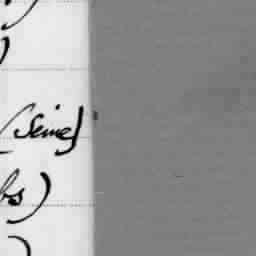 )
)
(Seine)
bs)
)